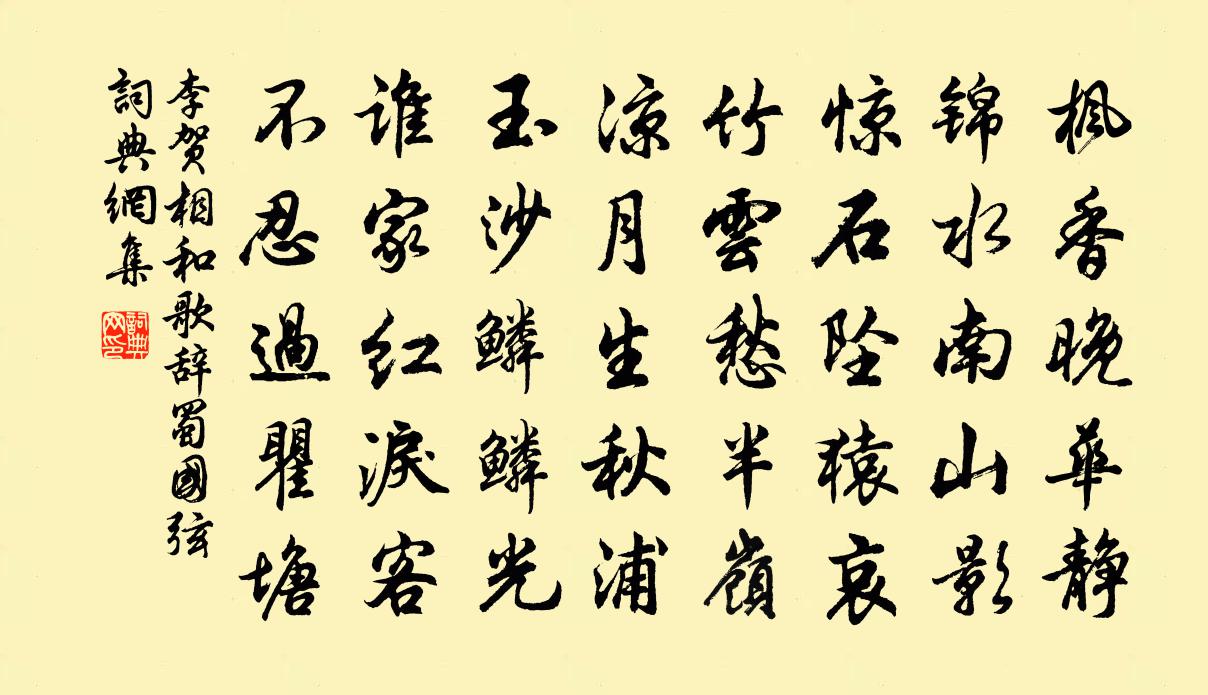 枫香晚華静
锦水南山影
惊石坠猿哀
竹雲愁半嶺
凉月生秋浦
玉沙鳞鳞光
谁家红淚客
不忍過瞿塘
李贺相和歌辞蜀國弦
詞典網集
詞典网印